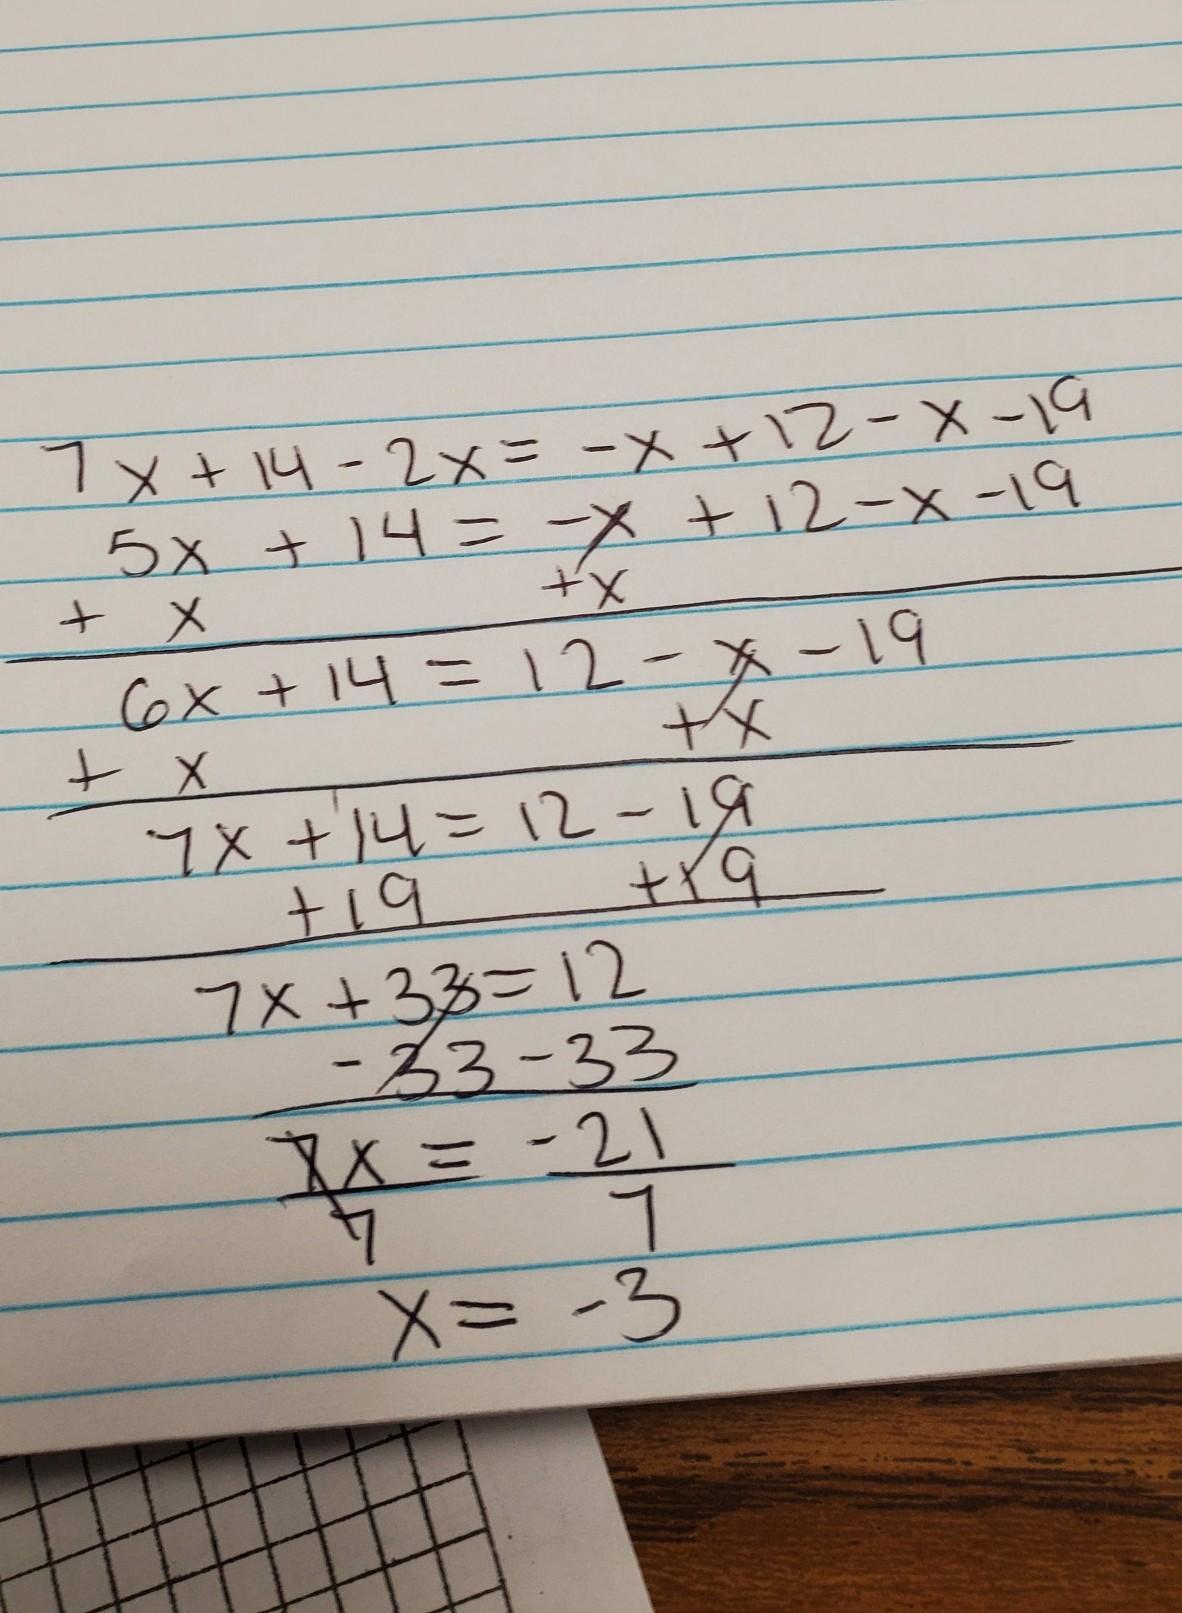 7x + 14 - 2x = -x + 12 - x - 19
5x + 14 = -x + 12 - x - 19
+ x +x
6x + 14 = 12 - x - 19
+ x +x
7x + 14 = 12 - 19
+19 +19
7x + 33 = 12
- 33 - 33
7x = -21
7 7
x = -3